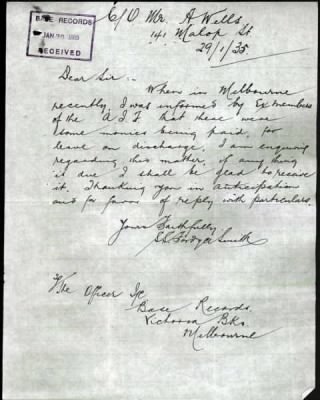 C/O Mr. A Wells
141 Malop St.
29/1/35
BASE RECORDS
JAN 30 1935
RECEIVED
Dear Sir:-
When in Melbourne
recently, I was informed by Ex members
of the A.I.F. that there were
some monies being paid, for
leave on discharge. I am enquiring
regarding this matter, if any thing
is due I shall be glad to receive
it. Thanking you in anticipation
and for favor of reply with particulars.
Yours Faithfully
Smith
The Officer I/c
Base Records
Victoria Bks.
Melbourne